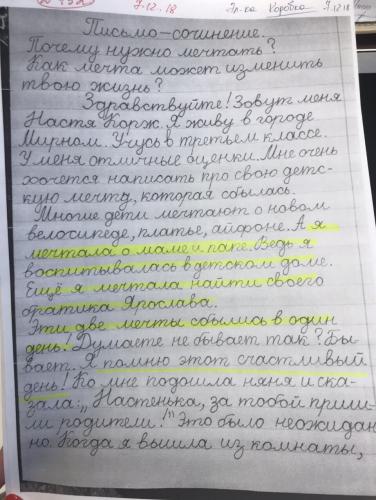 7.12.18 Пл-ка Коробка 7.12.18
Письмо-сочинение.
Почему нужно мечтать?
Как мечта может изменить
твою жизнь?
Здравствуйте! Зовут меня
Настя Корж. Я живу в городе
Мирном. Учусь в третьем классе.
У меня отличные оценки. Мне очень
хочется написать про свою детс-
кую мечту, которая сбылась.
Многие дети мечтают о новом
велосипеде, платье, айфоне. А я
мечтала о маме и папе. Ведь я
воспитывалась в детском доме.
Ещё я мечтала найти своего
братика Ярослава.
Эти две мечты сбылись в один
день! Думаете не бывает так? Бы-
вает. Я помню этот счастливый
день! Ко мне подошла няня и ска-
зала: „Настенька, за тобой приш-
ли родители!" Это было неожидан
но. Когда я вышла из комнаты,